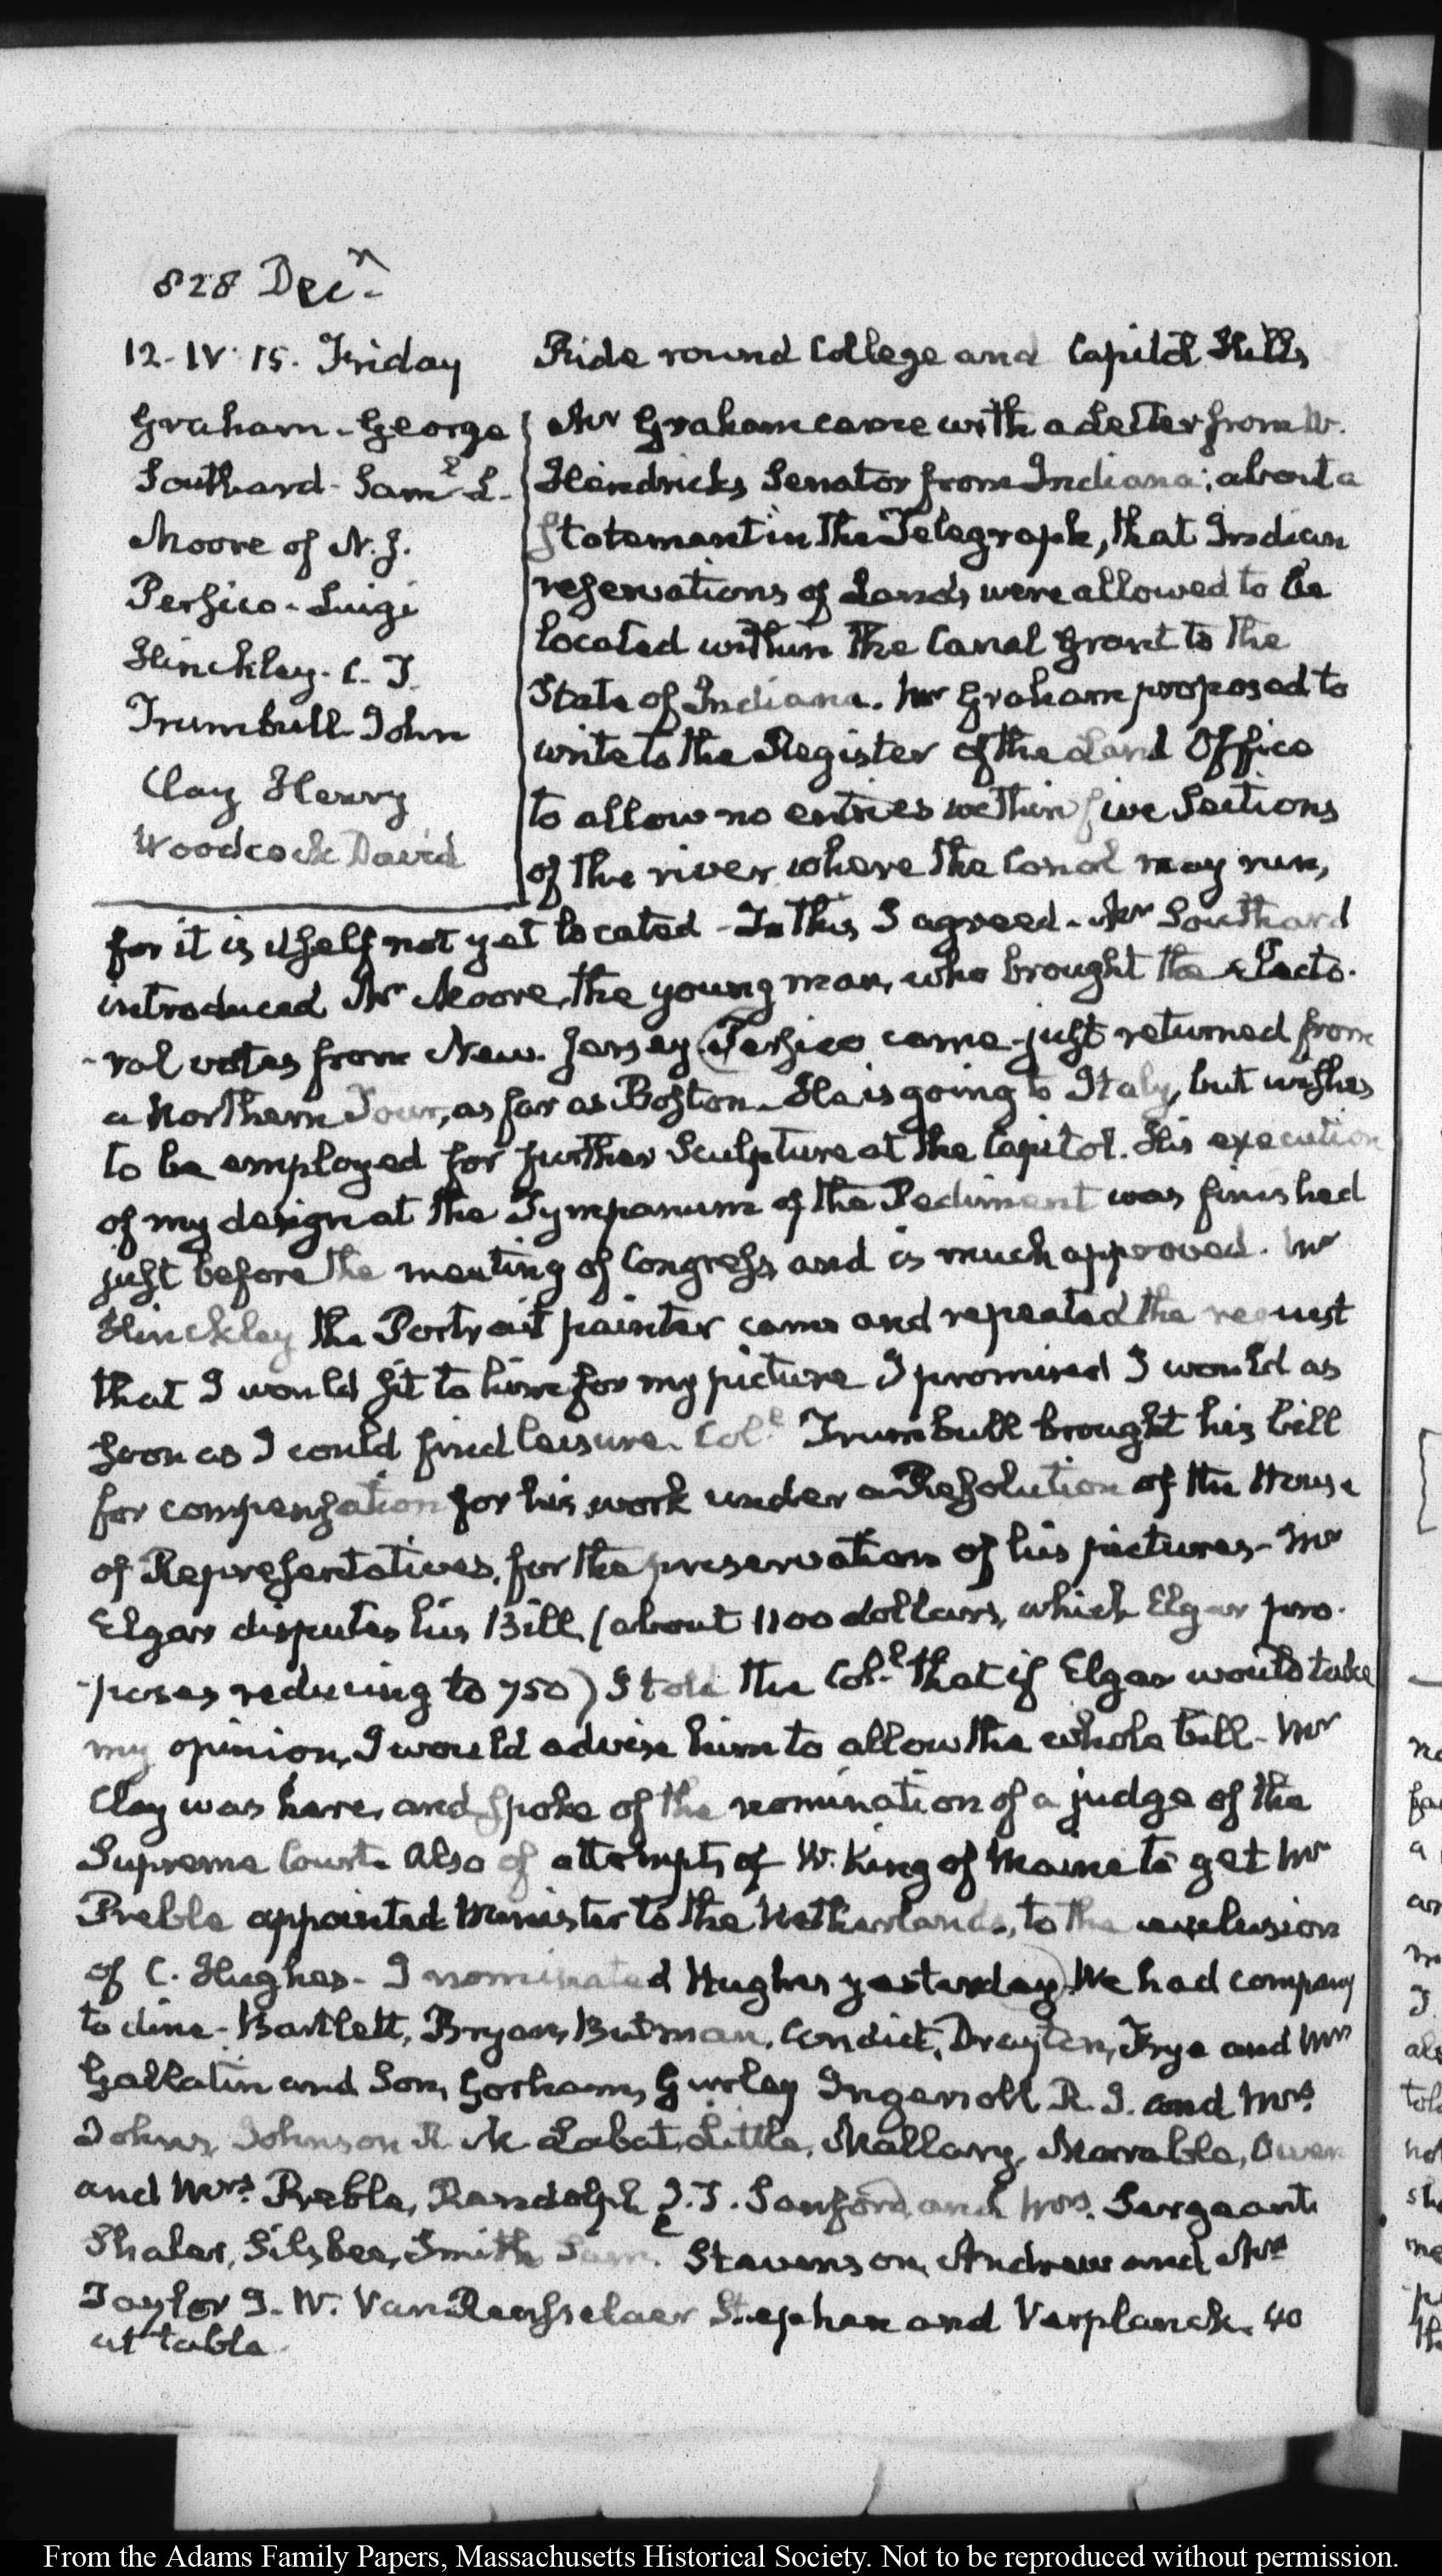 828 Dec.r
12. IV. 15. Friday
Graham. George
Southard. Sam.l L.
Moore of N.J.
Persico. Luigi
Hinckley. C. T.
Trumbull John
Clay Henry
Woodcock David
Ride round College and Capitol Hills
Mr Graham came with a Letter from W.
Hendricks Senator from Indiana; about a
Statement in the Telegraph, that Indian
reservations of Lands were allowed to be
located within the Canal Grant to the
State of Indiana. Mr Graham proposed to
write to the Register of the Land Office
to allow no entries within five Sections
of the river where the Canal may run,
for it is itself not yet located - To this I agreed. Mr Southard
introduced Mr Moore, the young man, who brought the Electo-
-ral votes from New Jersey (Persico came just returned from
a Northern Tour, as far as Boston. He is going to Italy, but wishes
to be employed for further Sculpture at the Capitol. His execution
of my design at the Tympanum of the Pediment was finished
just before the meeting of Congress and is much approved. Mr
Hinckley the Portrait painter came and repeated the request
that I would sit to him for my picture I promised I would as
soon as I could find leisure. Col.l Trumbull brought his bill
for compensation for his work under a Resolution of the House
of Representatives, for the preservation of his pictures - Mr
Elgar disputes his Bill (about 1100 dollars, which Elgar pro-
-poses reducing to 750) I told the Col.l that if Elgar would take
my opinion, I would advise him to allow the whole bill - Mr
Clay was here, and spoke of the nomination of a judge of the
Supreme Court. Also of attempts of W. King of Maine to get Mr
Preble appointed Minister to the Netherlands, to the exclusion
of C. Hughes - I nominated Hughes yesterday) We had company
to dine - Bartlett, Bryan, Butman, Condict, Drayton, Frye and Mrs
Gallatin and Son, Gorham, Gurley Ingersoll R. I. and Mrs.
Johns, Johnson R. M. Labat, Little, Mallary, Marable, Owen
and Mrs. Preble, Randolph J. T. Sanford, and Mrs. Sergeant
Shaler, Silsbee, Smith Sam.l Stevenson, Andrew and Mrs
Taylor J. W. Van Rensselaer Stephen and Verplanck. 40
at table.
From the Adams Family Papers, Massachusetts Historical Society. Not to be reproduced without permission.